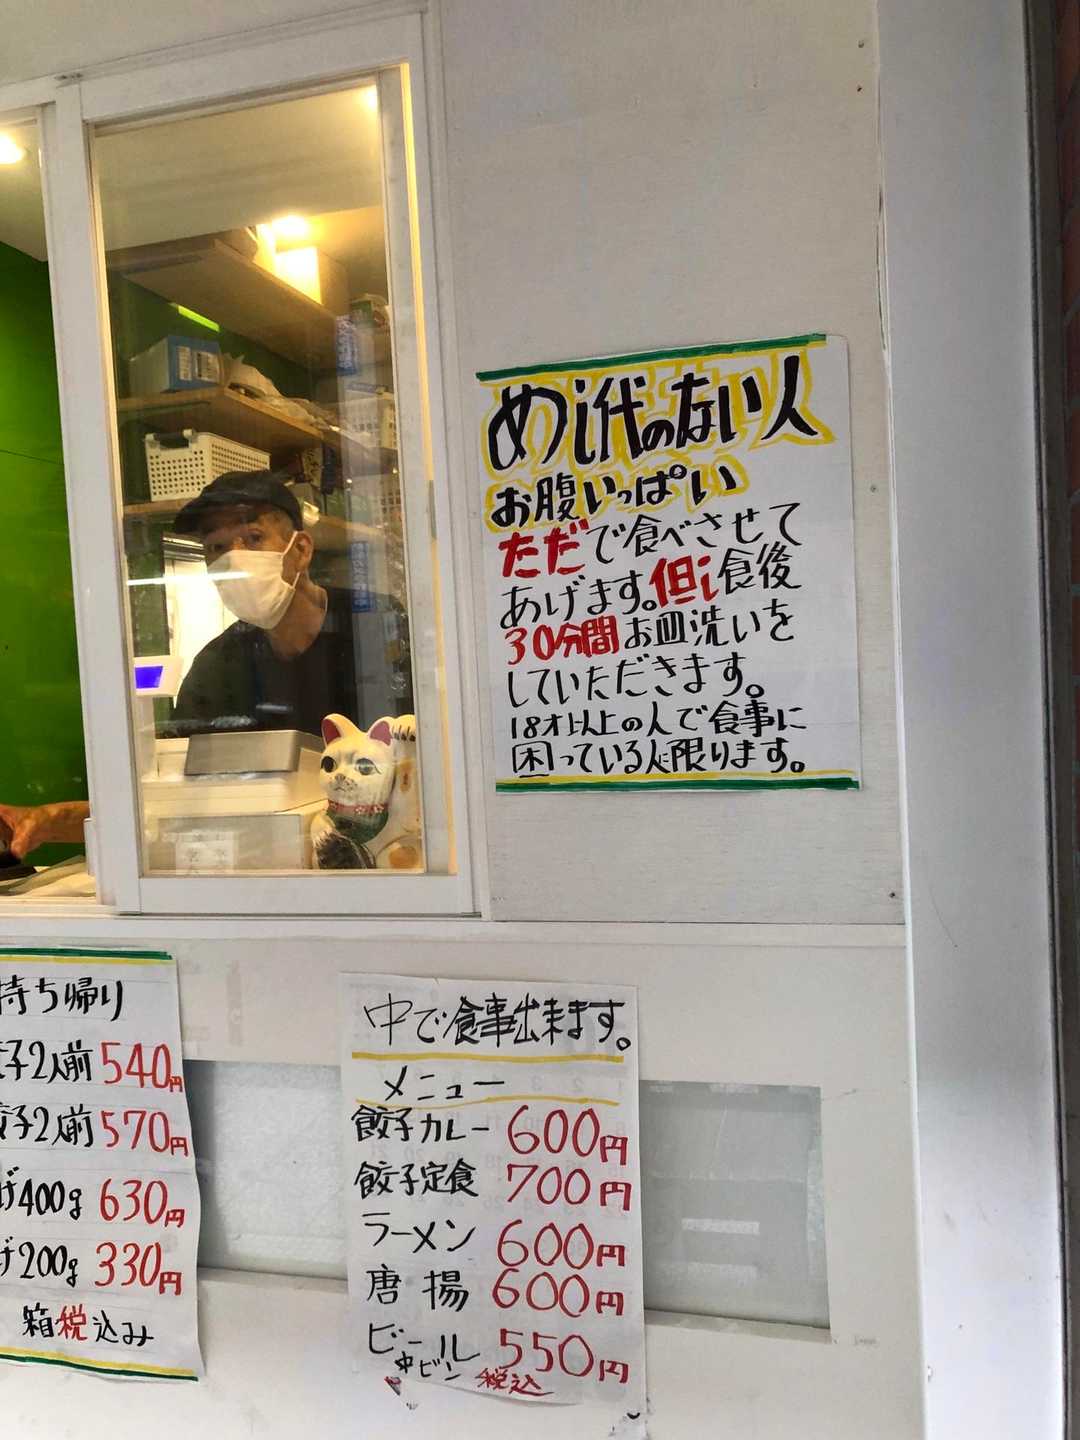 めし代のない人
お腹いっぱい
ただで食べさせて
あげます。但し食後
30分間お皿洗いを
していただきます。
18才以上の人で食事に
困っている人に限ります。
持ち帰り
子2人前 540円
餃子2人前 570円
げ400g 630円
げ200g 330円
箱税込み
中で食事出来ます。
メニュー
餃子カレー 600円
餃子定食 700円
ラーメン 600円
唐揚 600円
ビール 550円
中ビン 税込